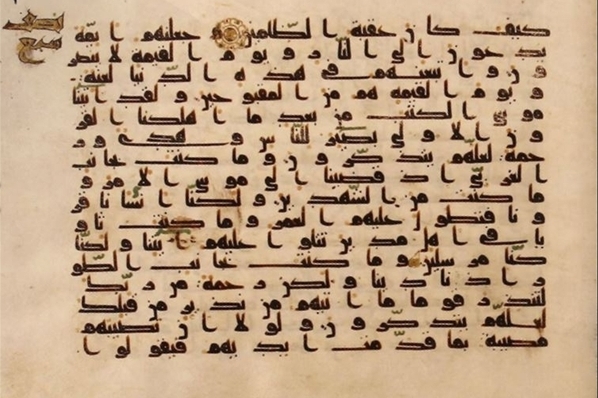 كيف كان عقبة الظلمين و جعلنهم ائمة
يدعون الى النار و يوم القيمة لا ينصر
ون و اتبعنهم في هذه الدنيا لعنة
و يوم القيمة هم من المقبوحين و لقد اتينا
موسى الكتب من بعد ما اهلكنا القر
ون الاولى بصئر للناس و هدى و ر
حمة لعلهم يتذكرون و ما كنت بجانب
الغربي اذ قضينا الى موسى الامر و
ما كنت من الشهدين و لكنا انشانا قر
ونا فتطاول عليهم العمر و ما كنت ثاو
يا في اهل مدين تتلوا عليهم ايتنا و لكنا
كنا مرسلين و ما كنت بجانب الطو
ر اذ نادينا و لكن رحمة من ربك
لتنذر قوما ما اتيهم من نذير من قبلك
لعلهم يتذكرون و لولا ان تصيبهم
مصيبة بما قدمت ايديهم فيقولوا